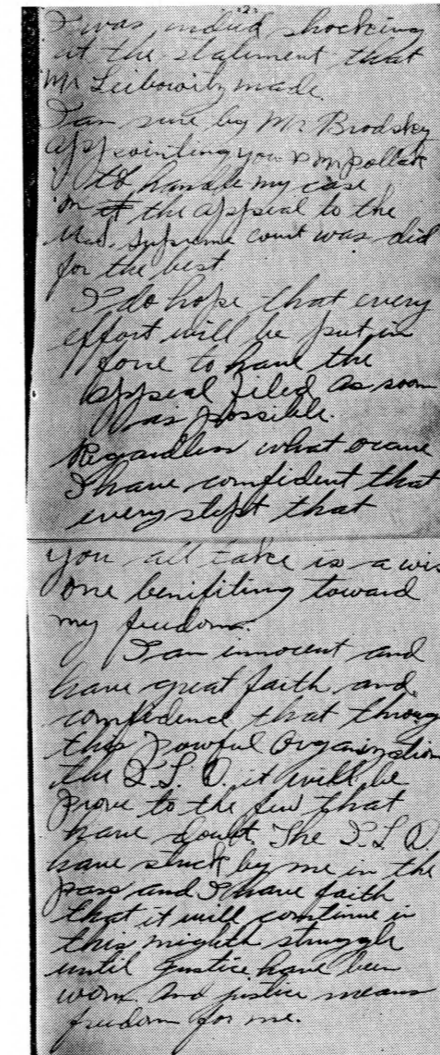 -2-
I was indied shocking
at the statement that
Mr Leibowitz made.
I am sure by Mr Brodsky
appointing you & Mr pollak
to handle my case
on the appeal to the
supreme court was did
for the best.
I do hope that every
effort will be put in
fore to have the
appeal filed as soon
as possible.
Regardless what ocure
I have comfident that
every stept that
you all take is a wis
one benifiting toward
my freedom.
I am innocent and
have great faith and
comfidence that throug
this powful Organization
the I. L. D. it will be
prove to the few that
have doubt. The I. L. D.
have stuck by me in the
pass and I have faith
that it will comtinue in
this mighth struggle
until justice have been
worn. And justice means
freedom for me.